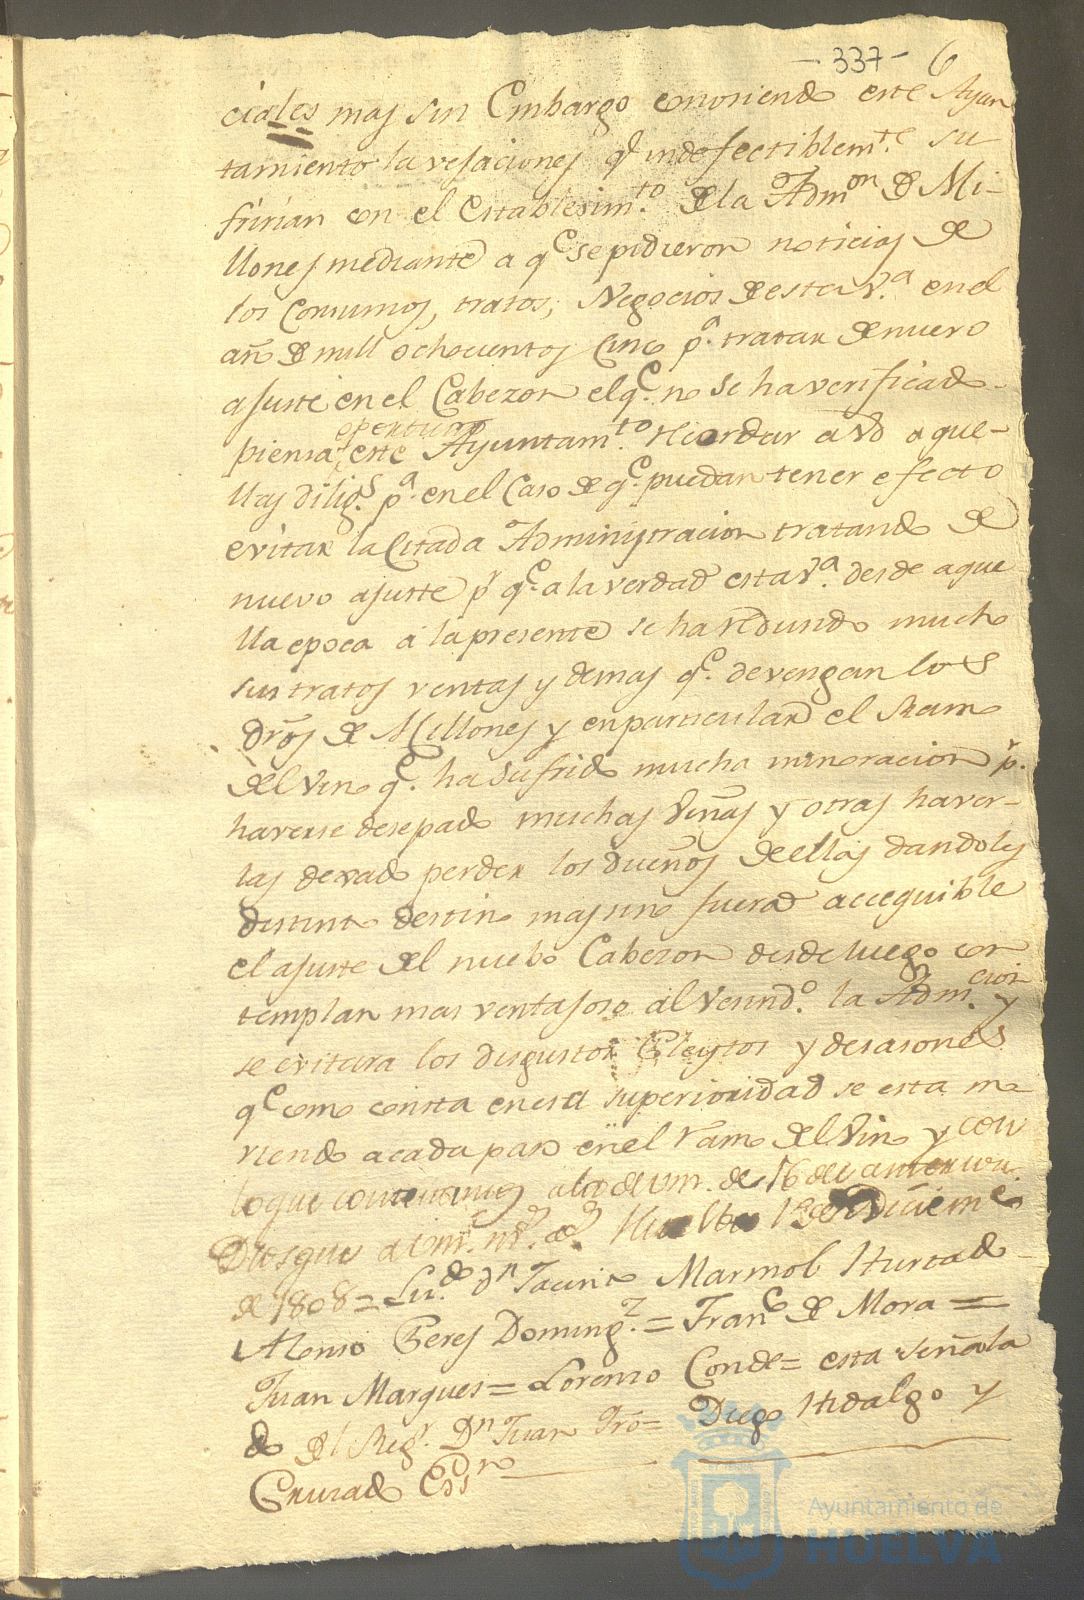 - 337 - 6
ciales mas sin Embargo conosiendo este Ayun
tamiento la vejaciones q.e indefectiblem.te su
fririan con el Establesim.to de la Adm.on de Mi-
llones mediante a q.e se pidieron noticias de
los Consumos, tratos, Negocios de esta V.a en el
año de mill ochocientos Cinco p.a tratar de nuevo
ajuste en el Cabezon el q.e no se ha verificado
oportuno
piensa este Ayuntam.to recordar a VS aque-
llas dilig.s p.a en el Caso de q.e puedan tener efecto
evitar la Citada Administracion tratando de
nuevo ajuste p.r q.e a la verdad esta V.a desde aque
lla epoca a la presente se ha redusido mucho
sus tratos ventas y demas q.e devengan los
dros de Millones y en particular el Ramo
del Vino q.e ha sufrido mucha minoracion p.r
haverse desepado muchas Viñas y otras haver-
las dexado perder los dueños de ellas dandoles
distinto destino mas sino fuera accequible
el ajuste del nuebo Cabezon desde luego con
templan mas ventajoso al Vesind.o la Adm.cion y
se evitara los disgustos Pleytos y desasones
q.e como consta en esa superioridad se esta mo
viendo a cada paso en el ramo del Vino y con
lo que contextamos al de Vm. de 16 del
Dios gue a Vm. m.s a.s Huelba Diciem.e
de 1808 = Lis.do d.n Jacinto Marmol Hurtado
Alonso Peres Doming.z = Fran.co de Mora =
Juan Marques = Lorenzo Conde = esta señala
do del Reg.r D.n Juan Tró = Diego Hidalgo y
Cruzado Ess.no
Ayuntamiento de
HUELVA